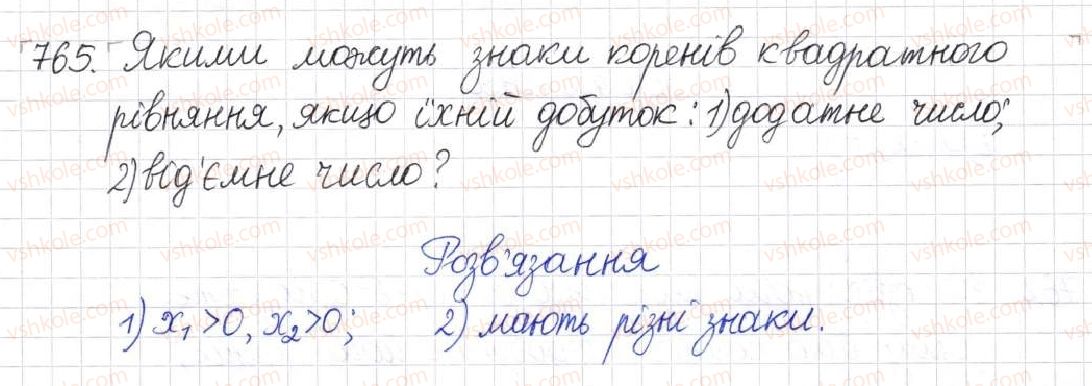 765. Якими можуть знаки коренів квадратного
рівняння, якщо їхній добуток: 1) додатне число;
2) від'ємне число?
Розв'язання
1) x₁ >0, x₂ >0; 2) мають різні знаки.